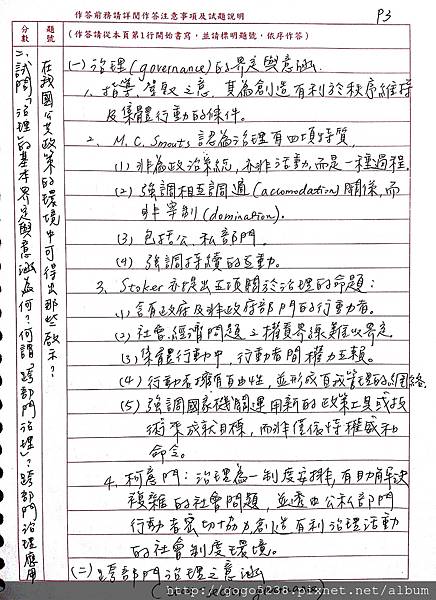 作答前務請詳閱作答注意事項及試題說明
P3
分數
題號
(作答請從本頁第1行開始書寫,並請標明題號,依序作答)
二、試問「治理」的基本界定與意涵為何?何謂「跨部門治理」?跨部門治理應用
在我國公共政策的環境中可得出那些啟示?
(一)治理(governance)的界定與意涵
1. 指導、駕馭之意,其為創造有利於秩序維持
及集體行動的條件。
2. M.C. Smouts 認為治理有四項特質,
(1) 非為政治系統,亦非活動,而是一種過程。
(2) 強調相互調適(accomodation)關係,而
非宰制(domination)。
(3) 包括公、私部門。
(4) 強調持續的互動。
3. Stoker 亦提出五項關於治理的命題:
(1) 含有政府及非政府部門的行動者。
(2) 社會、經濟問題之權責界線難以界定。
(3) 集體行動中,行動者間權力互賴。
(4) 行動者擁有自主性,並形成自我管理的網絡。
(5) 強調國家機關運用新的政策工具或技
術來成就目標,而非僅依恃權威和
命令。
4. 柯意門:治理為一制度安排,有助解決
複雜的社會問題,並透由公私部門
行動者密切協力創造有利治理活動
的社會制度環境。
(二)跨部門治理之意涵
http://gogo5238.pixnet.net/album